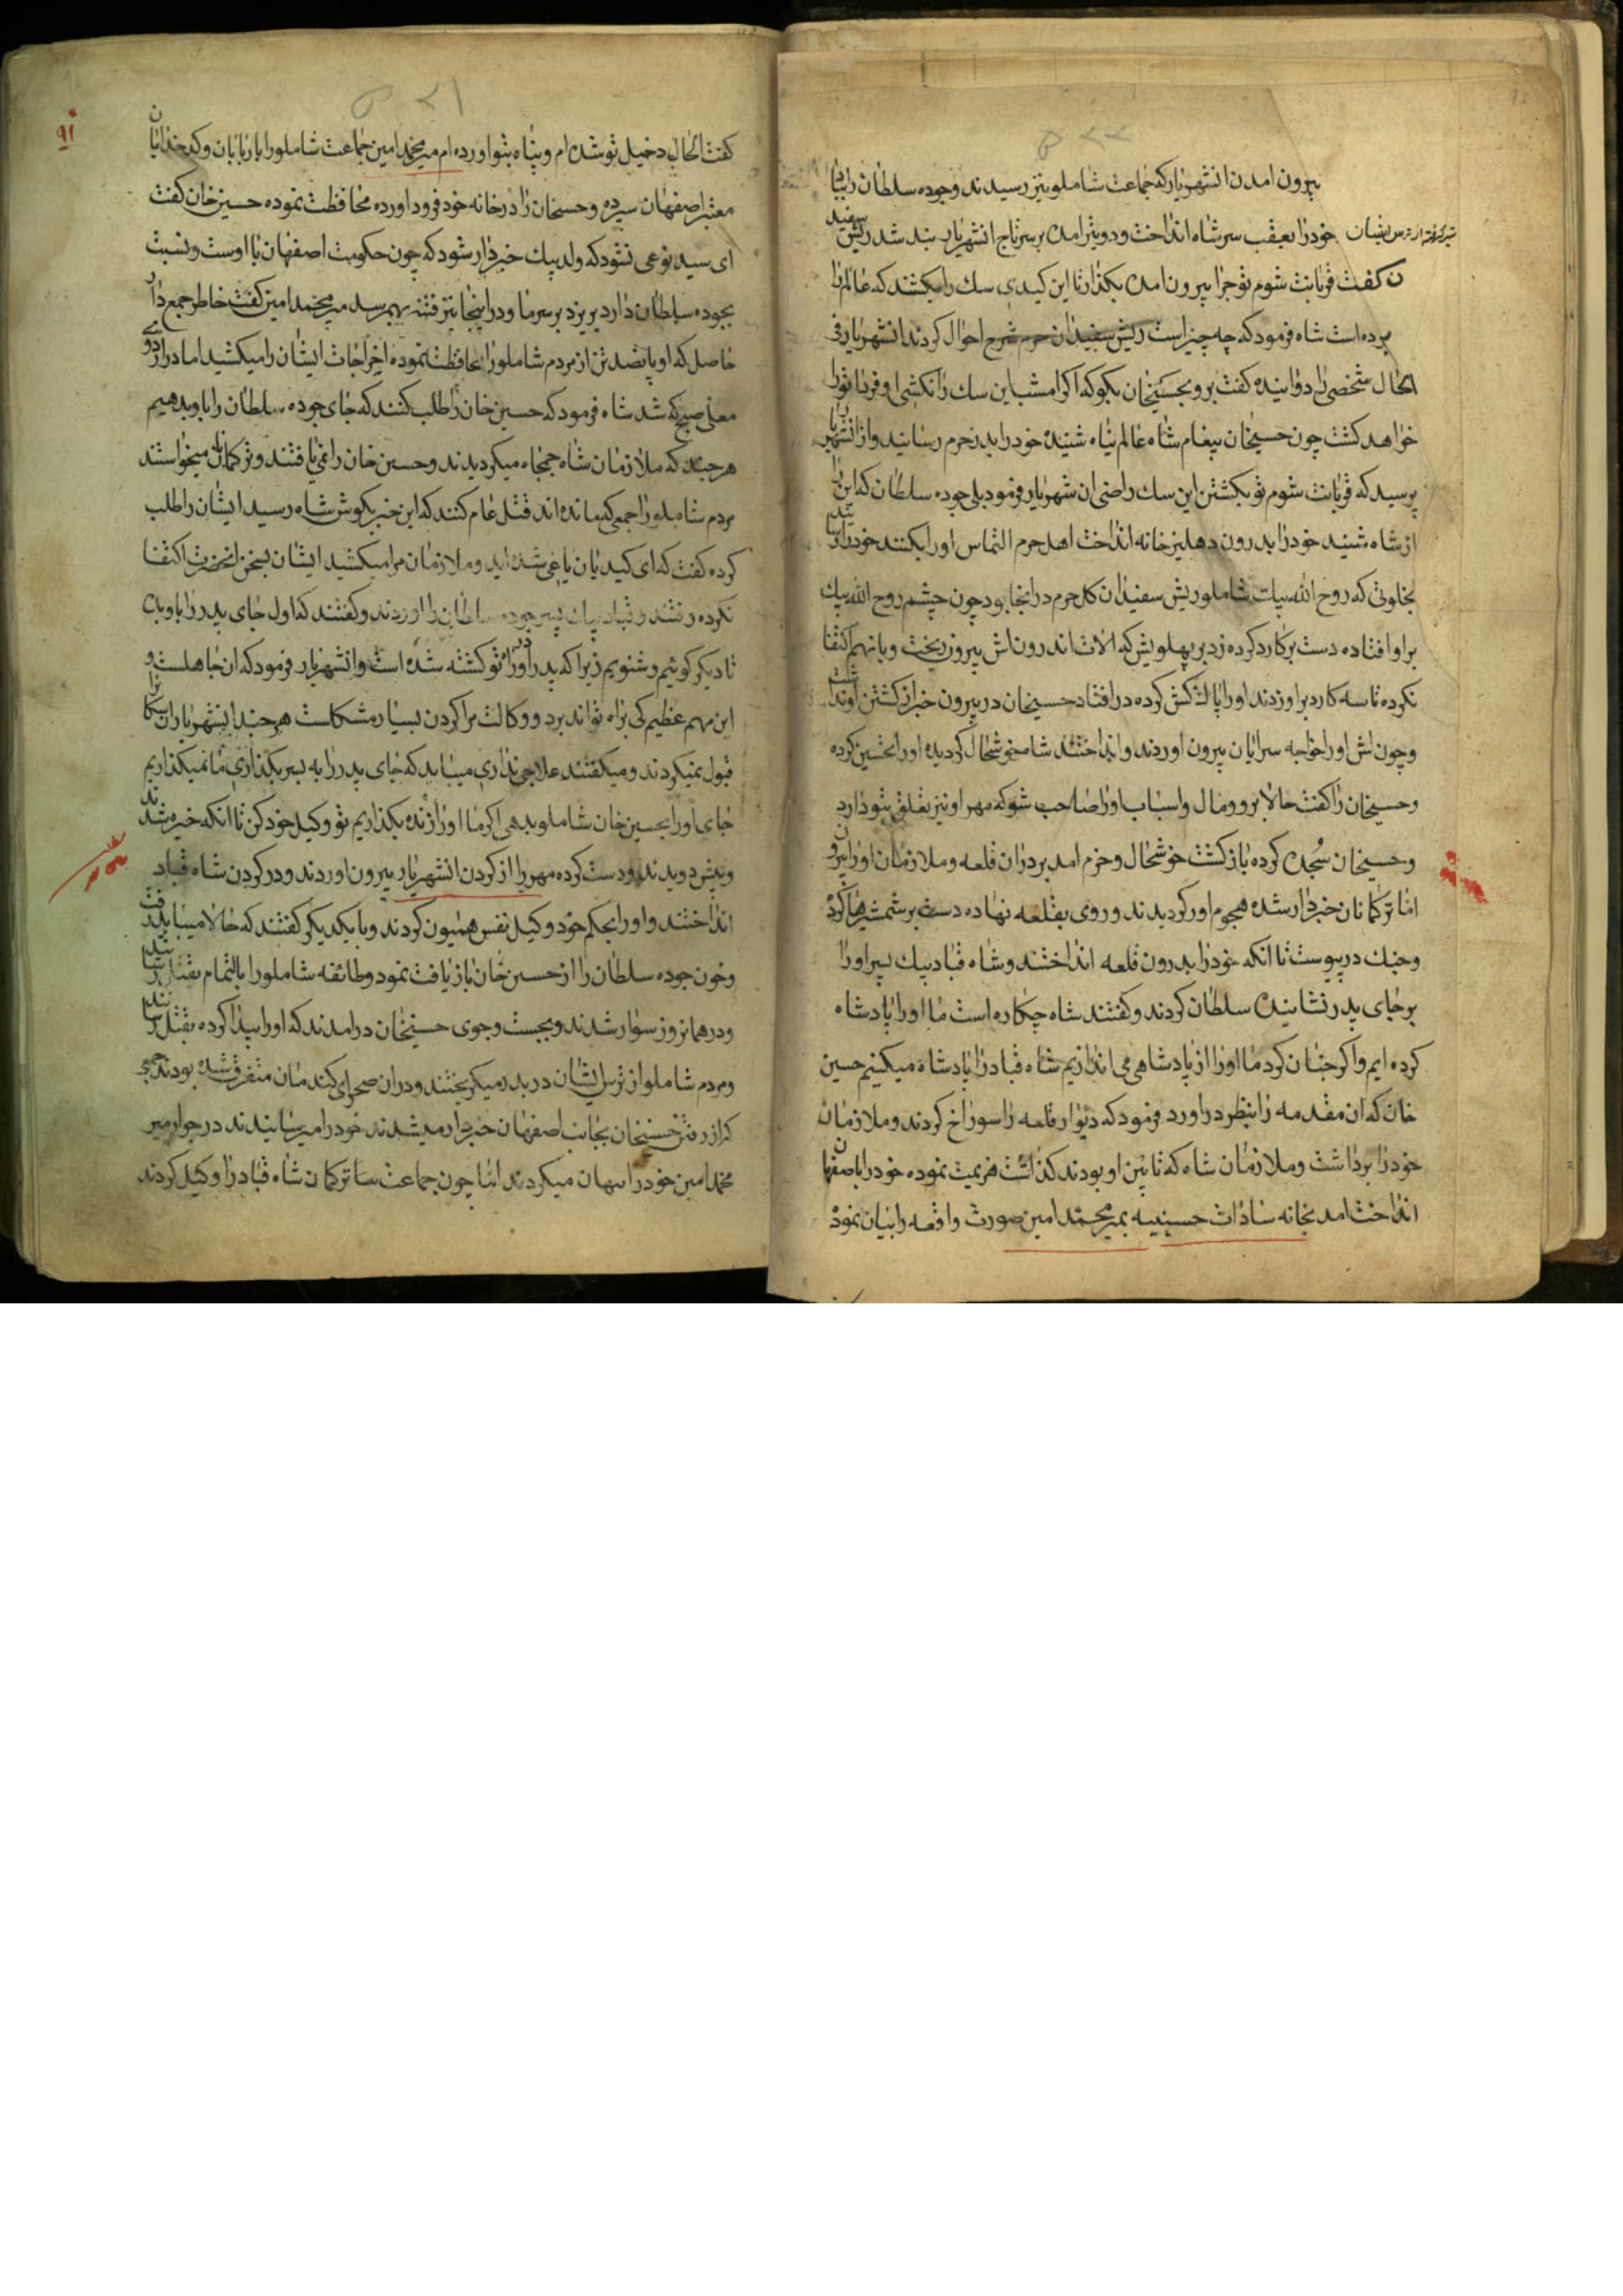 بیرون امدن انشهریار که جماعت شاملو نیز رسیدند وجوده سلطان را بیاد
خود را بعقب سر شاه انداخت ودو تیر امده بر سر تاج انشهریار بند شد ریش سفید
ن کفت قربانت شوم تو چرا بیرون امده بکذار تا این کیدی سک را بکشند که عالم را
برده است شاه فرمود که چه چیز است ریش سفیدان حرم شرح احوال کردند انشهریار فی
الحال شخصی را دوانیده کفت برو بحسینخان بکو که اکر امشب این سک را نکشی او فردا تو را
خواهد کشت چون حسینخان پیغام شاه عالم پناه شنید خود را بدر حرم رسانید واز انشهریار
پرسید که قربانت شوم تو بکشتن این سک راضی ان شهریار فرمود بلی جوده سلطان که این را
از شاه شنید خود را بدرون دهلیز خانه انداخت اهل حرم التماس او را بکنند خود را رسانیدند
بخلوتی که روح الله بیک شاملو ریش سفیدان کل حرم در انجا بود چون چشم روح الله بیک
بر او افتاده دست بر کارد کرده زد بر پهلویش که الات اندرون اش بیرون ریخت وبانهم اکتفا
نکرده تا سه کارد بر او زدند او را پاک کش کرده در افتاد حسینخان در بیرون خبر از کشتن او نداشت
وچون لش او را خواجه سرایان بیرون اوردند وانداختند شاه خوشحال کردیده او را تحسین کرده
وحسینخان را کفت حالا برو ومال واسباب او را صاحب شو که مهر او نیز تعلق بتو دارد
وحسینخان سجده کرده باز کشت خوشحال وخرم امد بر در ان قلعه وملازمان او را بیرون
اما ترکمانان خبردار شده هجوم اور کردیدند وروی بقلعه نهاده دست بر شمشیرها کرد
وجنک در پیوست تا انکه خود را بدرون قلعه انداختند وشاه قباد بیک پسر او را
بر جای پدر نشانیده سلطان کردند وکفتند شاه چکاره است ما او را پادشاه
کرده ایم واکر چنان کرد ما او را از پادشاهی می اندازیم شاه قباد را پادشاه میکنیم حسین
خان که ان مقدمه را بنظر در اورد فرمود که دیوار قلعه را سوراخ کردند وملازمان
خود را برداشت وملازمان شاه که تابین او بودند کذاشت هزیمت نموده خود را باصفهان
انداخت امد بخانه سادات حسینیه بمیر محمد امین صورت واقعه را بیان نمود
۹۱
کفت الحال دخیل تو شده ام وپناه بتو اورده ام میر محمد امین جماعت شاملو را باربابان وکدخدایان
معتبر اصفهان سپرده وحسینخان را در خانه خود فرود اورده محافظت نموده حسین خان کفت
ای سید نوعی نشود که ولد بیک خبردار شود که چون حکومت اصفهان با اوست ونسبت
بجوده سلطان دارد بریزد بر سر ما ودر اینجا نیز فتنه بهم رسد میر محمد امین کفت خاطر جمع دار
حاصل که او پانصد تن از مردم شاملو را محافظت نموده اخراجات ایشان را میکشید اما در اردوی
معلی صبح که شد شاه فرمود که حسین خان را طلب کنند که جای جوده سلطان را باو بدهیم
هر چند که ملازمان شاه جمجاه میکردیدند وحسین خان را نمی یافتند وترکمانان میخواستند
مردم شاملو را جمعی که مانده اند قتل عام کنند که این خبر بکوش شاه رسید ایشان را طلب
کرده کفت که ای کیدیان یاغی شده اید وملازمان مرا میکشید ایشان بسخن انحضرت اکتفا
نکرده رفتند وقباد بیک پسر جوده سلطان را اوردند وکفتند که اول جای پدر را باو بده
تا دیکر کوئیم وشنویم زیرا که پدر او در راه تو کشته شده است وانشهریار فرمود که ان جاهلست و
این مهم عظیم کی براه تواند برد ووکالت مرا کردن بسیار مشکلست هر چند انشهریار ان سکان را
قبول نمیکردند ومیکفتند علاجی نداری میباید که جای پدر را به پسر بکذاری ما نمیکذاریم
جای او را بحسین خان شاملو بدهی اکر ما او را زنده بکذاریم تو وکیل خود کن تا انکه خیره شدند
وپیش دویدند ودست کرده مهر را از کردن انشهریار بیرون اوردند ودر کردن شاه قباد
انداختند واو را بحکم خود وکیل نفس همیون کردند وبا یکدیکر کفتند که حالا میباید رفت
وخون جوده سلطان را از حسین خان باز یافت نمود وطائفه شاملو را بالتمام بقتل رسانید
ودر همانروز سوار شدند وبجست وجوی حسینخان در امدند که او را پیدا کرده بقتل رسانند
ومردم شاملو از ترس ایشان در بدر میکریختند ودر ان صحرای کندمان متفرق شده بودند جمعی
که از رفتن حسینخان بجانب اصفهان خبردار میشدند خود را میرسانیدند در جوار میر
محمد امین خود را میکردند اما چون جماعت ترکمان شاه قباد را وکیل کردند